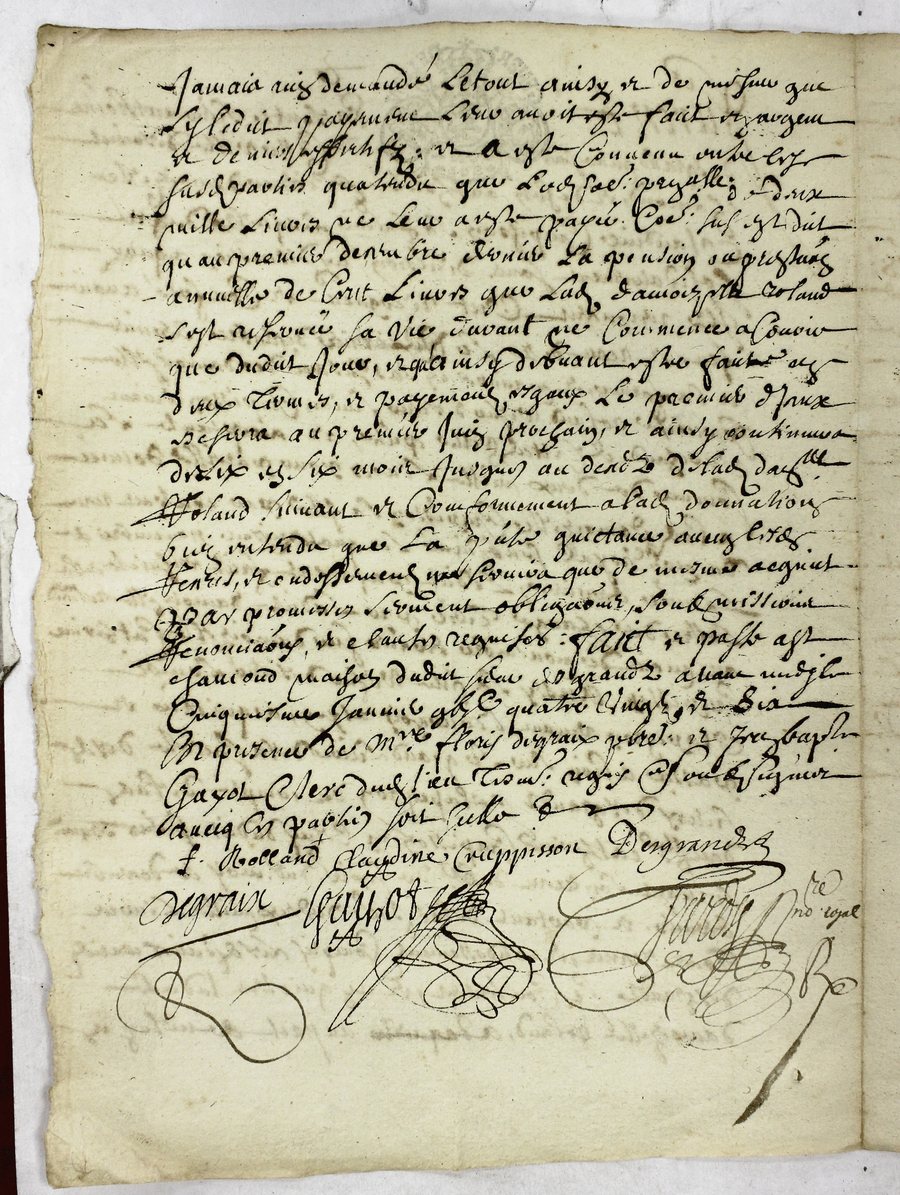 Jamais rien demandé Letout ainsy et de mesme que
Sy ledit payement Leur avoit esté faict en argent
et deniers effectifz, et a esté Convenu entre lesd
susd parties quatendu que Lad so͏e de deux
mille Livres ne Leur a esté payée Co͏e sus est dit
quau premier desembre dernier La pension ou prestaôn
annuelle de Cent Livres que Lad damoizelle Roland
sest reservée sa vie durant ne Commence a Courir
que dudit Jour, et quainsy debvant estre faicte en
deux Termes, et payements esgaux Le premier Diceux
escherra au premier Juin prochain, et ainsy continuera
de six en six mois Jusques au deceds de lad dalle
Roland suivant et Conformement a lad donnation
bien entendu que La pñte quictance avec lesd
et endossement ne servira que de mesme acquict
par promesses serment obligaôns, soubmissions
Renonciaôns, et clauses requises : faict et passé a St
chamond maison dudit sieur desgrands avant midy le
Cinquiesme Janvier quatre Vingt et dix
En presence de Mre floris degraix pbre et Jean bapte
Gayot Clerc dud lieu Tesm. requis et soubsignes
avecq les parties soit seelle &
f. Rolland Claudine Crappisson Desgrands
Degraix Gayot
nore royal